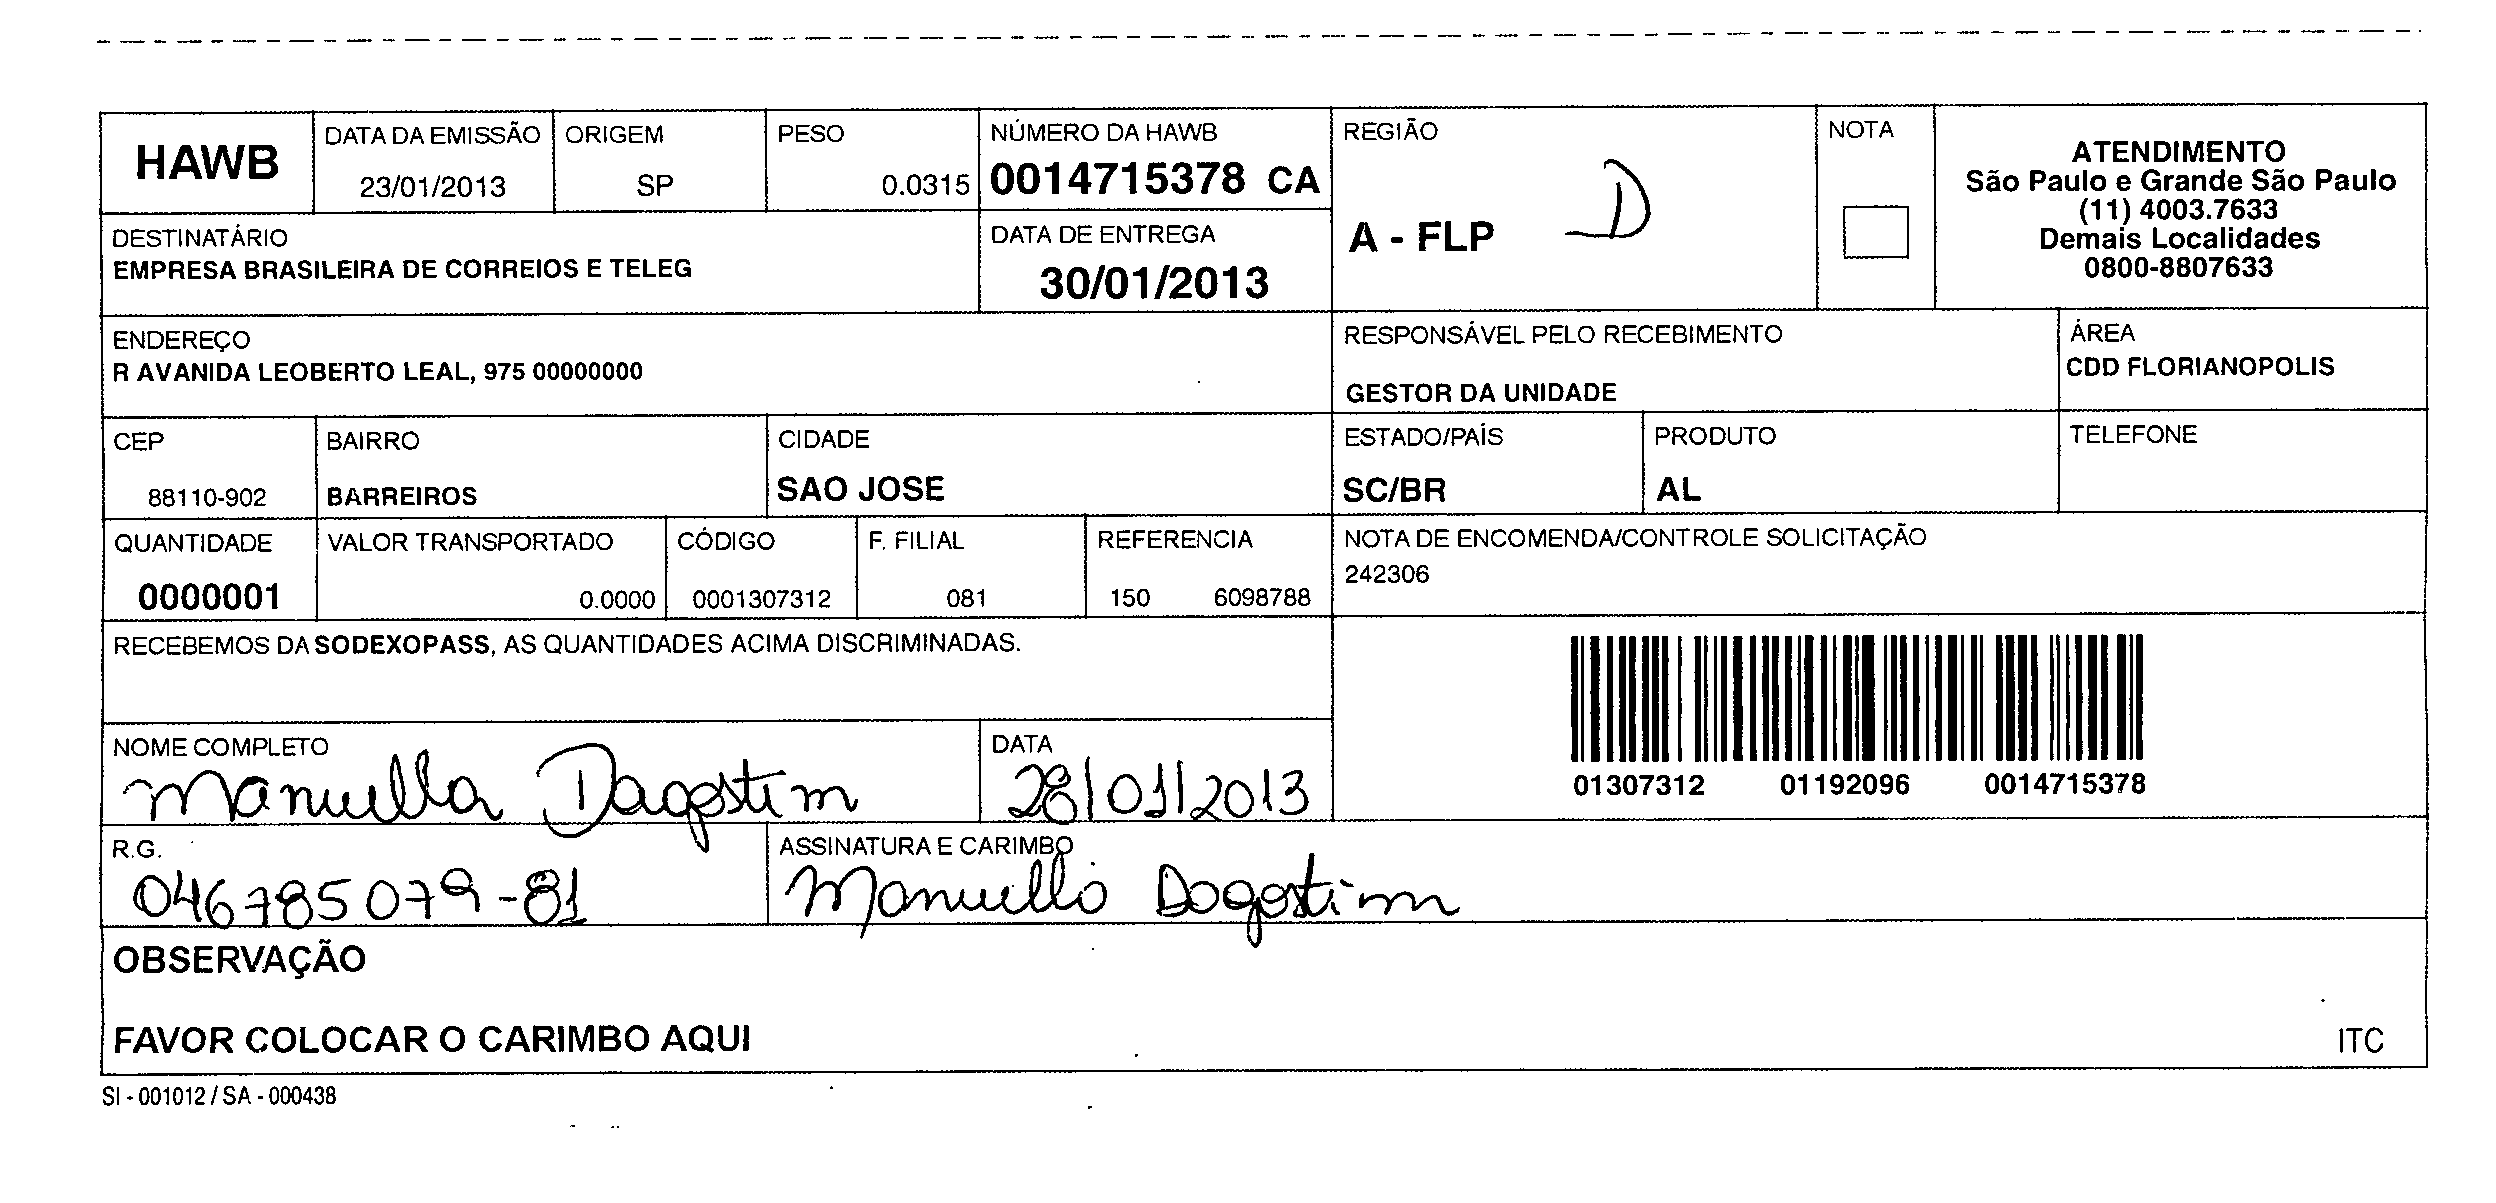 HAWB
DATA DA EMISSÃO
23/01/2013
ORIGEM
SP
PESO
0.0315
NÚMERO DA HAWB
0014715378 CA
REGIÃO
A - FLP
D
NOTA
ATENDIMENTO
São Paulo e Grande São Paulo
(11) 4003.7633
Demais Localidades
0800-8807633
DESTINATÁRIO
EMPRESA BRASILEIRA DE CORREIOS E TELEG
DATA DE ENTREGA
30/01/2013
ENDEREÇO
R AVANIDA LEOBERTO LEAL, 975 00000000
RESPONSÁVEL PELO RECEBIMENTO
GESTOR DA UNIDADE
ÁREA
CDD FLORIANOPOLIS
CEP
88110-902
BAIRRO
BARREIROS
CIDADE
SAO JOSE
ESTADO/PAÍS
SC/BR
PRODUTO
AL
TELEFONE
QUANTIDADE
0000001
VALOR TRANSPORTADO
0.0000
CÓDIGO
0001307312
F. FILIAL
081
REFERENCIA
150 6098788
NOTA DE ENCOMENDA/CONTROLE SOLICITAÇÃO
242306
RECEBEMOS DA SODEXOPASS, AS QUANTIDADES ACIMA DISCRIMINADAS.
01307312 01192096 0014715378
NOME COMPLETO
Manuella Dagostim
DATA
28/01/2013
R.G.
046785079-81
ASSINATURA E CARIMBO
Manuella Dagostim
OBSERVAÇÃO
FAVOR COLOCAR O CARIMBO AQUI
ITC
SI - 001012 / SA - 000438